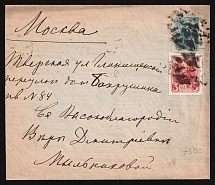 Москва
Тверская ул. Глинищевский
переулок дом Бахрушина
кв № 84
Ея Высокоблагородію
Вѣрѣ Дмитріевнѣ
Мыльниковой
3 3